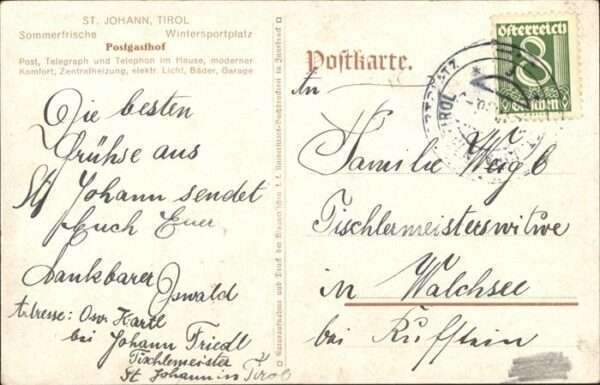 ST. JOHANN, TIROL
Sommerfrische Wintersportplatz
Postgasthof
Post, Telegraph und Telephon im Hause, moderner
Komfort, Zentralheizung, elektr. Licht, Bäder, Garage
Die besten
Grühse aus
St Johann sendet
Euch Euer
dankbarer Oswald
Adresse: Osw. Hartl
bei Johann Friedl
Tischlemeister
St Johann in Tirol
Postkarte.
An
Familie Weigl
Tischlermeisterswitwe
in Walchsee
bei Kuffstein
Österreich
8
Groschen
TIROL